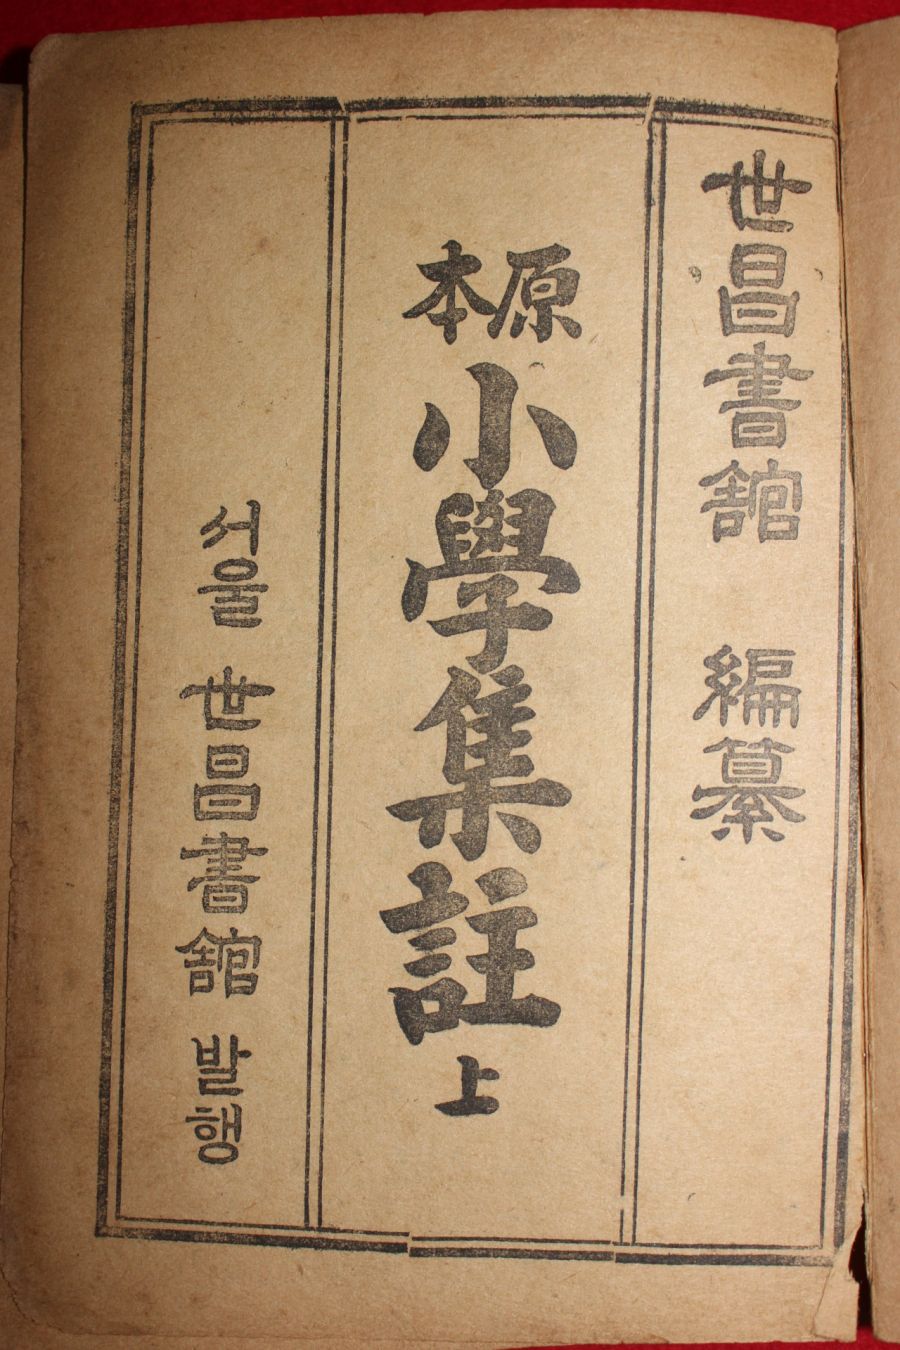 世昌書館 編纂
原本
小學集註 上
서울 世昌書舘 발행